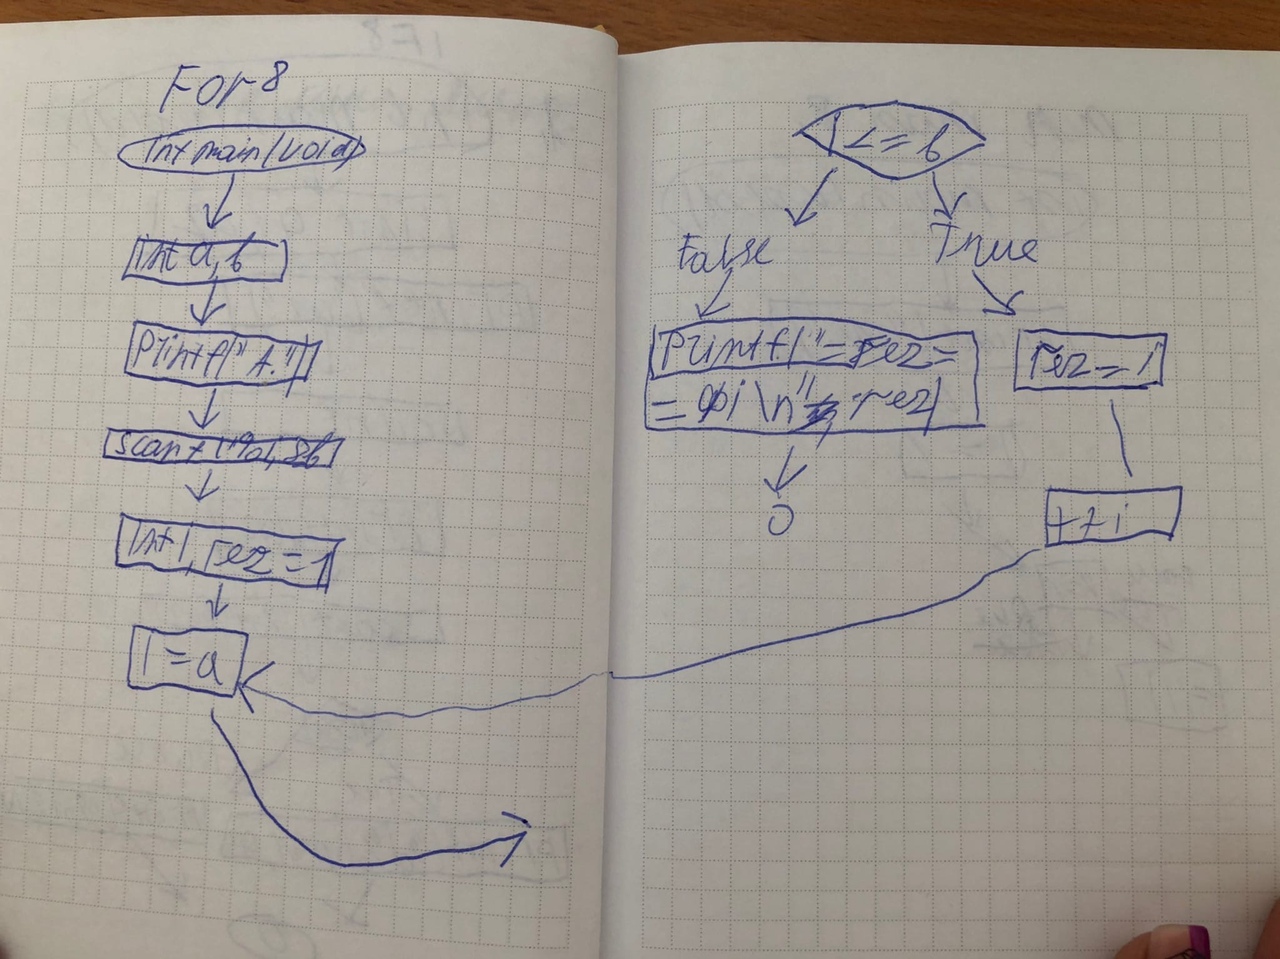 For 8
int main(void)
int a, b
printf("A:")
scanf("%d, &b
int i, rez=1
i=a
i<=b
False
True
printf("=rez=
=%i\n", rez)
rez=i
++i
0